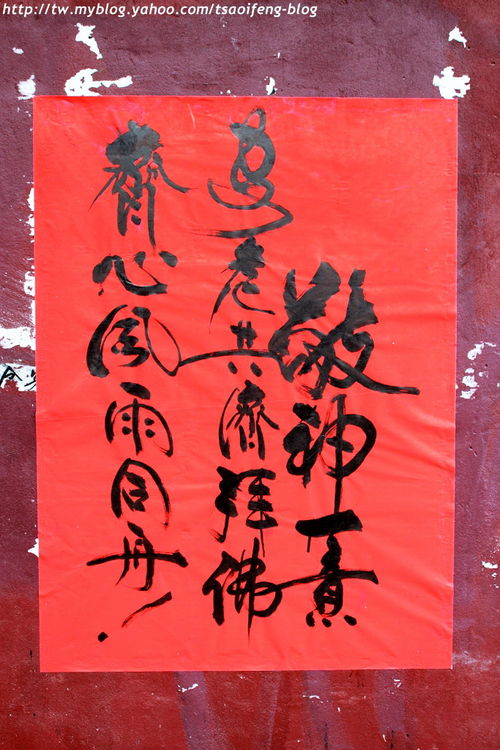 http://tw.myblog.yahoo.com/tsaoifeng-blog
敬神一
共濟拜佛
齊心風雨同舟!